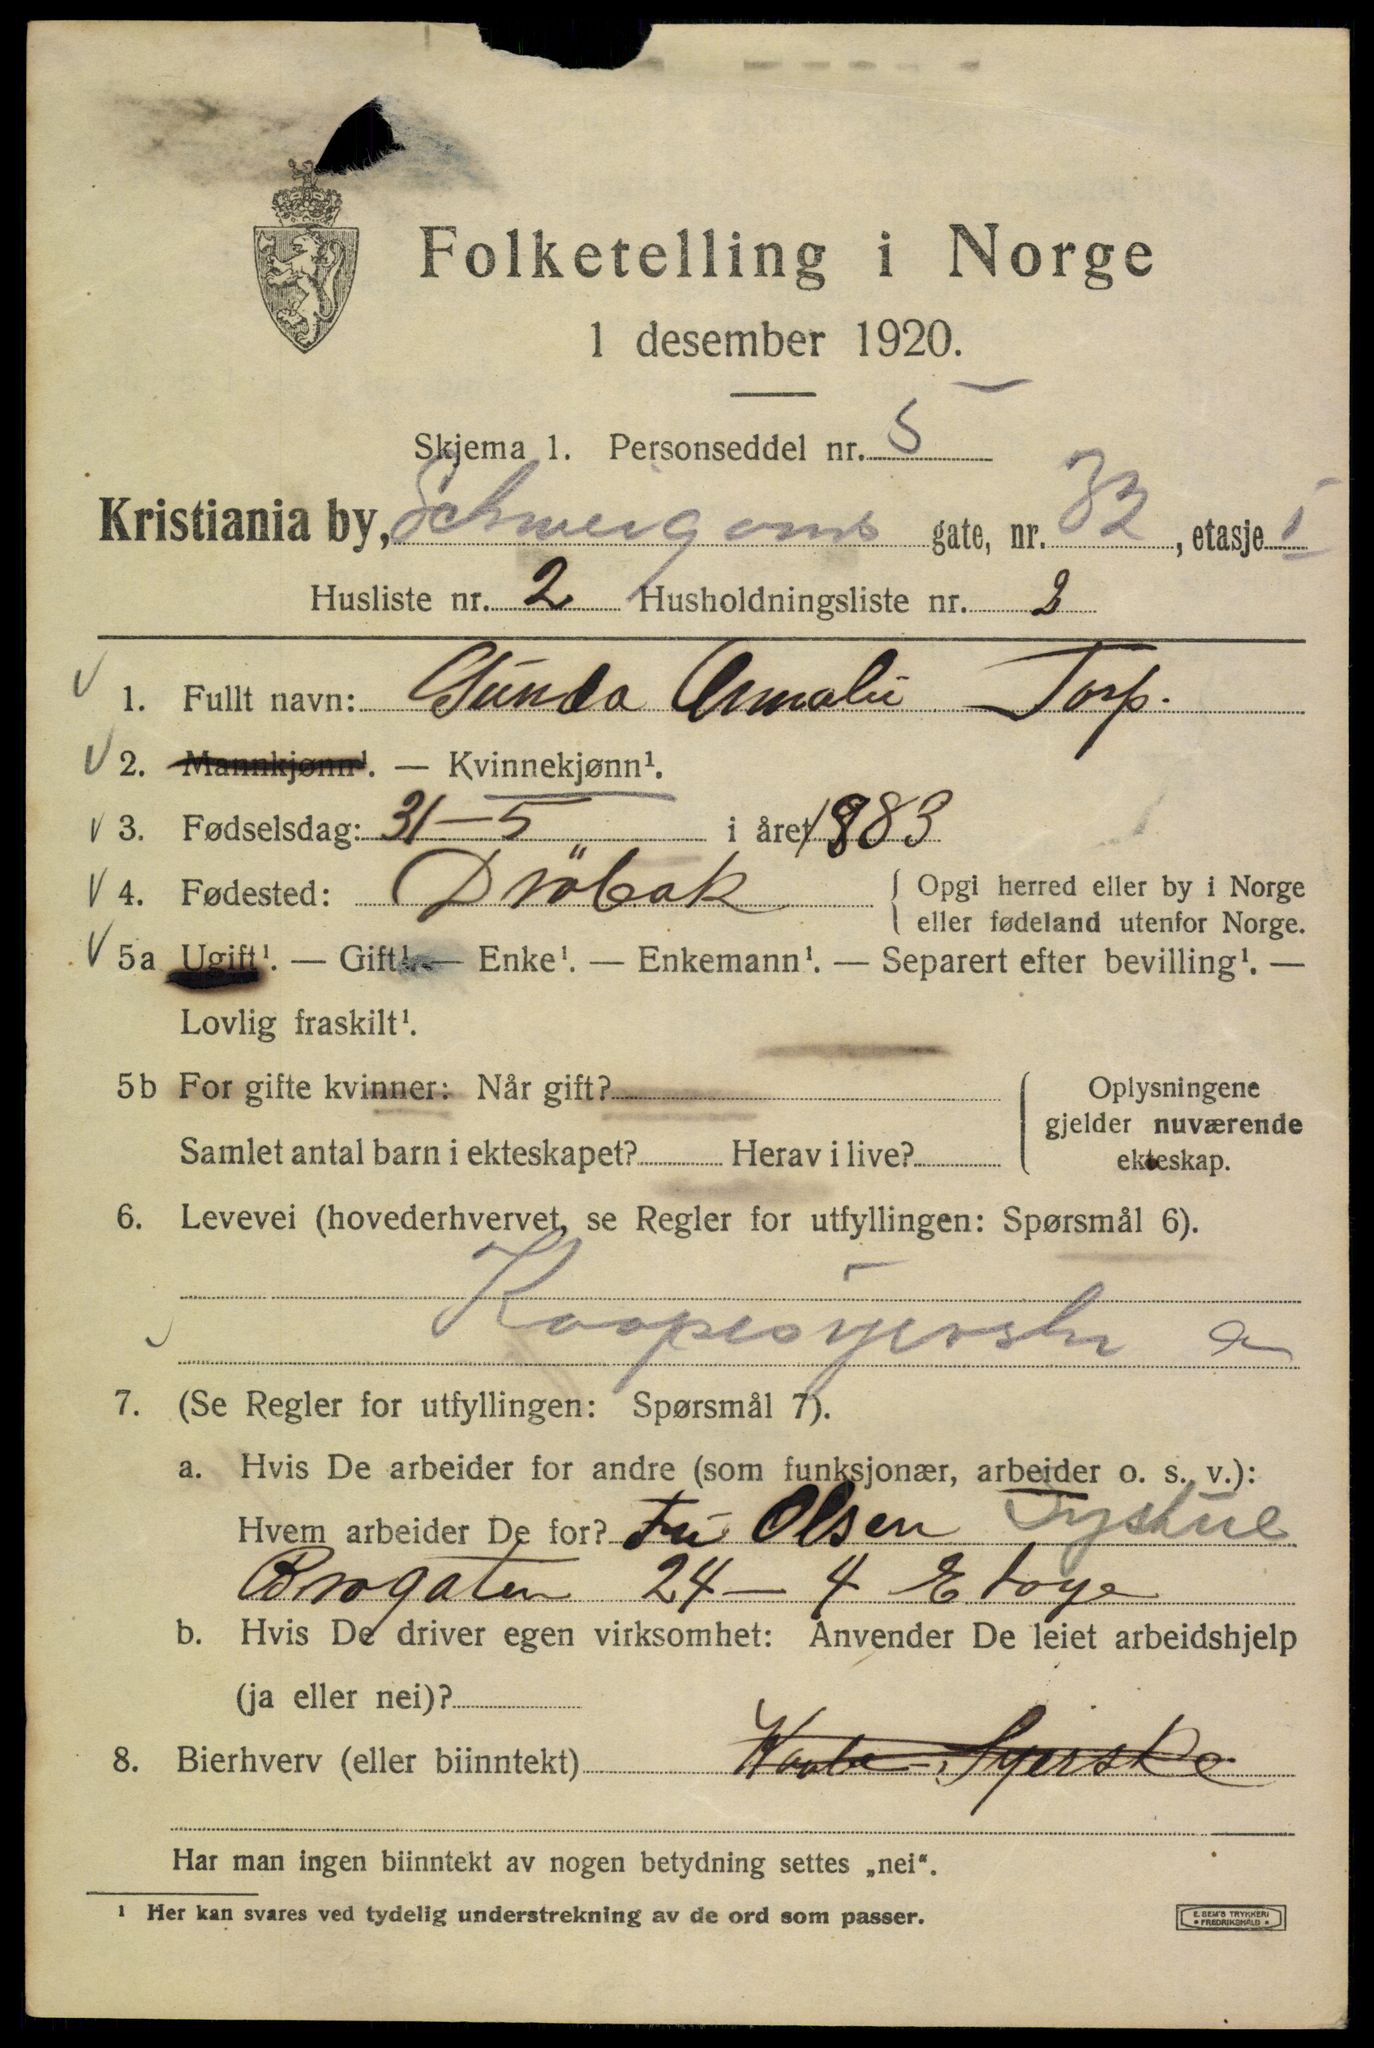 Folketelling i Norge
1 desember 1920.
Skjema 1. Personseddel nr. 5
Kristiania by, Schweigaards gate, nr. 82, etasje I
Husliste nr. 2 Husholdningsliste nr. 2
1. Fullt navn: Gunda Amalie Torp.
2. Mannkjønn¹. — Kvinnekjønn¹.
3. Fødselsdag: 31-5 i året 1883
4. Fødested: Dröbak { Opgi herred eller by i Norge
eller fødeland utenfor Norge.
5a Ugift¹. — Gift¹. — Enke¹. — Enkemann¹. — Separert efter bevilling¹. —
Lovlig fraskilt¹.
5b For gifte kvinner: Når gift? { Oplysningene
gjelder nuværende
Samlet antal barn i ekteskapet? Herav i live? ekteskap.
6. Levevei (hovederhvervet, se Regler for utfyllingen: Spørsmål 6).
Kaapesyerske
7. (Se Regler for utfyllingen: Spørsmål 7).
a. Hvis De arbeider for andre (som funksjonær, arbeider o. s. v.):
Hvem arbeider De for? Fru Olsen
Brogaten 24 - 4 Etage
b. Hvis De driver egen virksomhet: Anvender De leiet arbeidshjelp
(ja eller nei)?
8. Bierhverv (eller biinntekt) Kaabe-Syerske
Har man ingen biinntekt av nogen betydning settes „nei“.
¹ Her kan svares ved tydelig understrekning av de ord som passer.
E. SEM'S TRYKKERI
• FREDRIKSHALD •